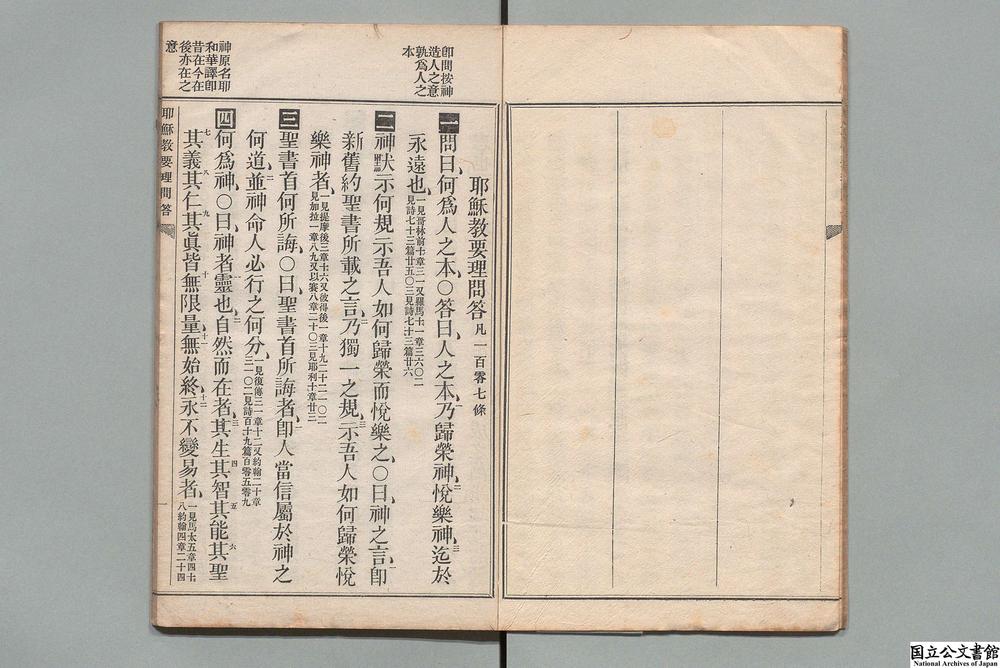 即問按神
造人之意
孰爲人之
本
耶穌教要理問答 凡一百零七條
一 問曰、何爲人之本、○答曰、人之本、乃歸榮神、悅樂神、迄於
永遠也、一見哥林前十章三一又羅馬十一章三六○二
見詩七十三篇廿五○三見詩七十三篇廿六
二 神狀示何規、示吾人如何歸榮而悅樂之、○曰、神之言、卽
新舊約聖書所載之言、乃獨一之規、示吾人如何歸榮悅
樂神者、一見提摩後三章十六又彼得後一章十九二十二一○二
見加拉一章八九又以賽八章二十○三見耶利十章廿三
三 聖書首何所誨、○曰、聖書首所誨者、卽人當信屬於神之
何道、並神命人必行之何分、一見復傳三一章十二又約翰二十章
三一○二見詩百十九篇百零五零九
四 何爲神、○曰、神者靈也、自然而在者、其生其智其能其聖
其義其仁其眞皆無限量、無始終、永不變易者、一見馬太五章四七
八約翰四章二十四
神原名耶
和華譯卽
昔在今在
後亦在之
意
耶穌教要理問答
国立公文書館
National Archives of Japan